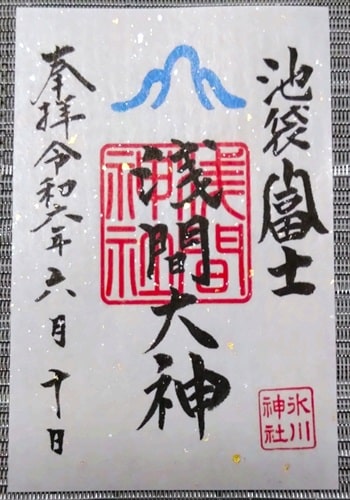 池袋富士
淺間大神
淺間神社
奉拝令和六年六月十日
氷川神社